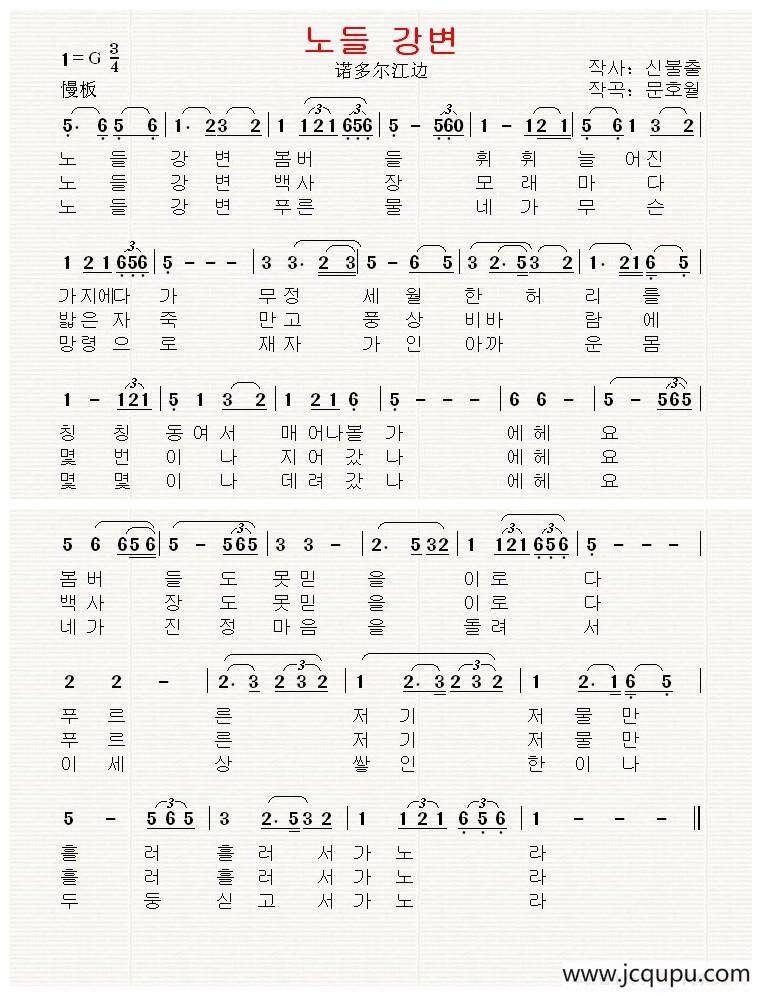 노들 강변
1=G 3/4
诺多尔江边
작사: 신불출
慢板
작곡: 문호월
5· 6 5 6 | 1· 23 2 | 1 121 656 | 5 - 560 | 1 - 12 1 | 5 6 1 3 2 |
노 들 강 변 봄버 들 휘휘 늘 어진
노 들 강 변 백사 장 모래 마 다
노 들 강 변 푸른 물 네가 무 슨
1 2 1 656 | 5 - - - | 3 3· 2 3 | 5 - 6 5 | 3 2· 5 3 2 | 1· 21 6 5 |
가지에다 가 무정 세 월 한 허 리 를
밟은 자 죽 만고 풍 상 비바 람 에
망령 으 로 재자 가 인 아까 운 몸
1 - 121 | 5 1 3 2 | 1 21 6 | 5 - - - | 6 6 - | 5 - 565 |
칭 칭 동여서 매 어나볼 가 에헤 요
몇 번 이 나 지어 갔 나 에헤 요
몇 몇 이 나 데려 갔 나 에헤 요
5 6 65 6 | 5 - 565 | 3 3 - | 2· 5 32 | 1 121 656 | 5 - - - |
봄버 들 도 못믿 을 이로 다
백사 장 도 못믿 을 이로 다
네가 진 정 마음 을 돌려 서
2 2 - | 2· 3 2 3 2 | 1 2· 3 2 3 2 | 1 2· 1 6 5 |
푸 르 른 저 기 저 물 만
푸 르 른 저 기 저 물 만
이 세 상 쌓 인 한 이 나
5 - 5 6 5 | 3 2· 5 3 2 | 1 1 2 1 6 5 6 | 1 - - - ‖
흘 러 흘 러 서 가 노 라
흘 러 흘 러 서 가 노 라
두 둥 싣 고 서 가 노 라
www.jcqupu.com